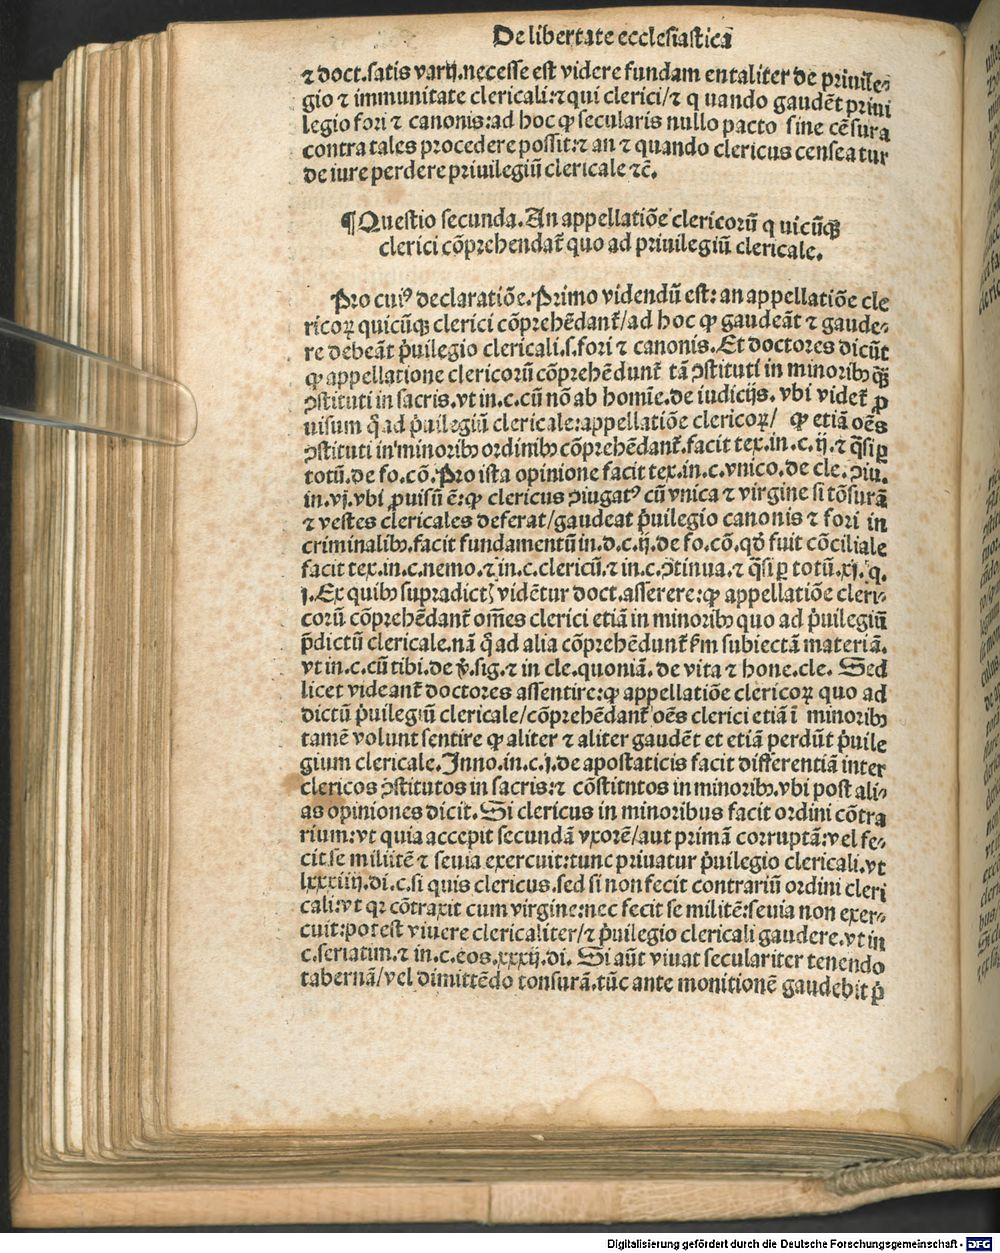 De libertate ecclesiastica
⁊ doct.satis varij.necesse est videre fundam entaliter de priuile⸗
gio ⁊ immunitate clericali:⁊qui clerici/⁊ q uando gaudēt priui
legio fori ⁊ canonis:ad hoc ꝙ secularis nullo pacto sine cēsura
contra tales procedere possit:⁊ an ⁊ quando clericus censeatur
de iure perdere priuilegiū clericale ⁊c̄.
¶Questio secunda.An appellatiōe clericorū q uicūqꝫ
clerici cōprehendat᷑ quo ad priuilegiū clericale.
Pro cuiꝰ declaratiōe.Primo videndū est: an appellatiōe cle
ricoꝝ quicūqꝫ clerici cōprehēdant᷑/ad hoc ꝙ gaudeāt ⁊ gaude⸗
re debeāt p̍uilegio clericali.s.fori ⁊ canonis.Et doctores dicūt
ꝙ appellatione clericorū cōprehēdunt᷑ tā ꝯstituti in minoribꝫ qꝫ̄
ꝯstituti in sacris.vt in.c.cū nō ab homīe.de iudicijs. vbi videt᷑ ꝓ
uisum ꝙ̄ ad p̍uilegiū clericale:appellatiōe clericoꝝ/ ꝙ etiā oēs
ꝯstituti in minoribꝫ ordinibꝫ cōprehēdant᷑.facit tex.in.c.ij.⁊ q̄si ꝑ
totū.de fo.cō.Pro ista opinione facit tex.in.c.vnico.de cle.ꝯiu.
in.vj.vbi ꝓuisū ē:ꝙ clericus ꝯiugatꝰ cū vnica ⁊ virgine si tōsurā
⁊ vestes clericales deferat/gaudeat p̍uilegio canonis ⁊ fori in
criminalibꝫ.facit fundamentū in.d.c.ij.de fo.cō.qd̄ fuit cōciliale
facit tex.in.c.nemo.⁊ in.c.clericū.⁊ in.c.ꝯtinua.⁊ q̄si ꝑ totū.xj.q.
j.Ex quibꝫ supradictꝭ vidētur doct.asserere:ꝙ appellatiōe cleri⸗
corū cōprehēdant᷑ om̄es clerici etiā in minoribꝫ quo ad p̍uilegiū
p̄dictū clericale.nā ꝙ̄ ad alia cōprehēdunt᷑ ẜm subiectā materiā.
vt in.c.cū tibi.de v̄.sig.⁊ in cle.quoniā. de vita ⁊ hone.cle. Sed
licet videant᷑ doctores assentire:ꝙ appellatiōe clericoꝝ quo ad
dictū p̍uilegiū clericale/cōprehēdant᷑ oēs clerici etiā ī minoribꝫ
tamē volunt sentire ꝙ aliter ⁊ aliter gaudēt et etiā perdūt p̍uile
gium clericale.Inno.in.c.j.de apostaticis facit differentiā inter
clericos ꝯstitutos in sacris:⁊ cōstitntos in minoribꝫ.vbi post ali⸗
as opiniones dicit.Si clericus in minoribus facit ordini cōtra
rium:vt quia accepit secundā vxorē/aut primā corruptā:vel fe⸗
cit se militē ⁊ seuia exercuit:tunc priuatur p̍uilegio clericali.vt
lxxxiiij.di.c.si quis clericus.sed si non fecit contrariū ordini cleri
cali:vt qꝛ cōtraxit cum virgine:nec fecit se militē:seuia non exer⸗
cuit:potest viuere clericaliter/⁊ p̍uilegio clericali gaudere.vt in
c.seriatim.⁊ in.c.eos.xxxij.di. Si aūt viuat seculariter tenendo
tabernā/vel dimittēdo tonsurā.tūc ante monitionē gaudebit p̍
Digitalisierung gefördert durch die Deutsche Forschungsgemeinschaft - DFG